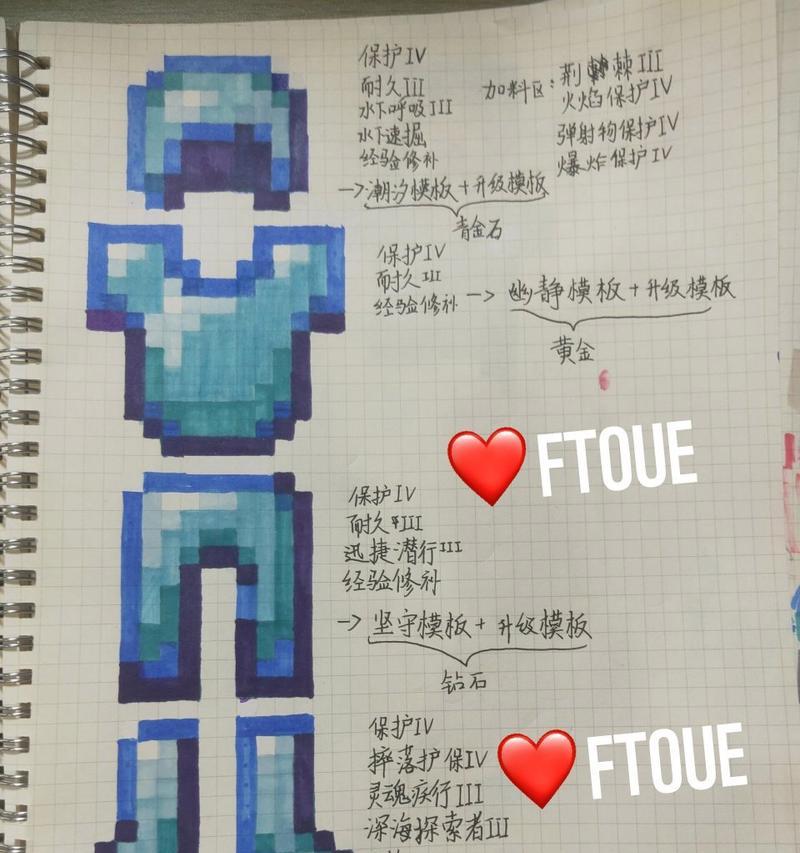 保护IV
耐久III
水下呼吸III
水下速掘
经验修补
加料区：荆棘III
火焰保护IV
弹射物保护IV
爆炸保护IV
->潮汐模板+升级模板
青金石
保护IV
耐久III
经验修补 -> 幽静模板+升级模板
黄金
FTOUE
保护IV
耐久III
迅捷潜行III
经验修补
-> 坚守模板+升级模板
钻石
保护IV
摔落护保IV
灵魂疾行III
深海探索者III
FTOUE